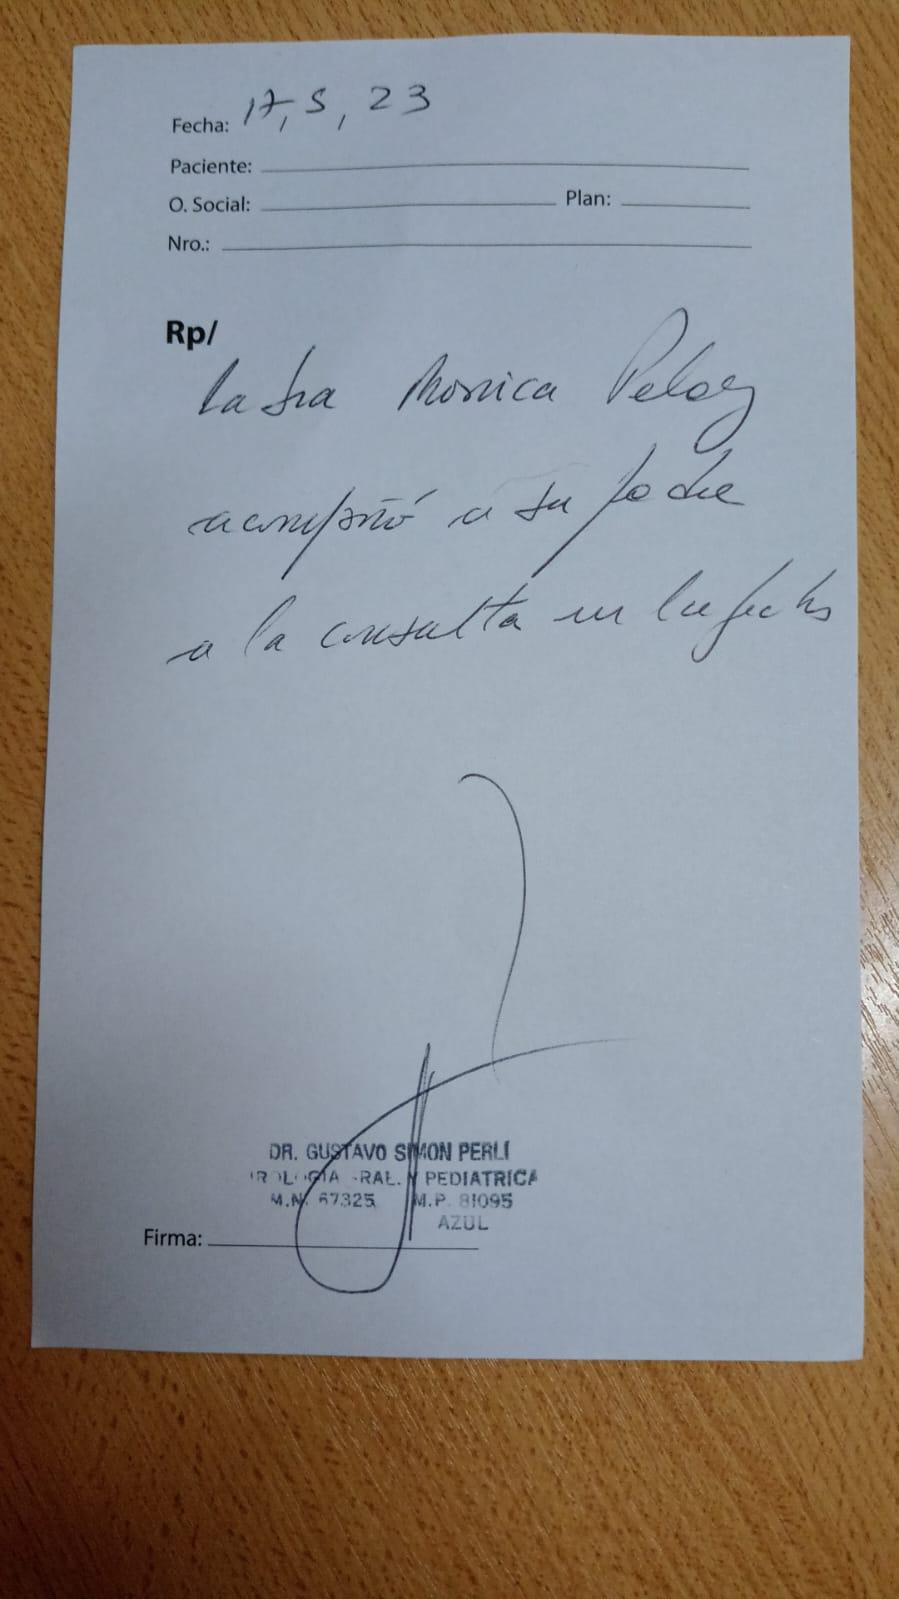 Fecha: 17, 5, 23
Paciente:
O. Social: Plan:
Nro.:
Rp/
La Sra Monica Peloz
acompañó a su padre
a la consulta en la fecha
DR. GUSTAVO SIMON PERLI
GRAL. Y PEDIATRICA
M.N. 67325 M.P. 81095
AZUL
Firma: